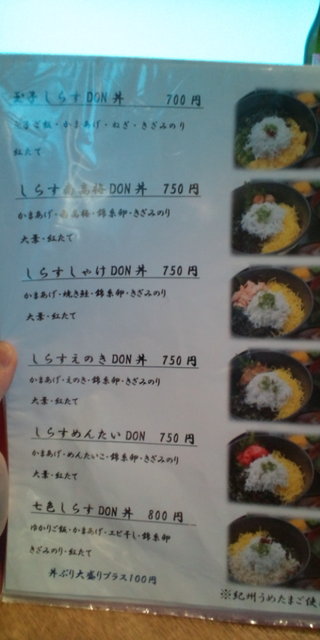 玉子しらすDON丼 700円
たまご飯・かまあげ・ねぎ・きざみのり
紅たて
しらす南高梅DON丼 750円
かまあげ・南高梅・錦糸卵・きざみのり
大葉・紅たて
しらすしゃけDON丼 750円
かまあげ・焼き鮭・錦糸卵・きざみのり
大葉・紅たて
しらすえのきDON丼 750円
かまあげ・えのき・錦糸卵・きざみのり
大葉・紅たて
しらすめんたいDON 750円
かまあげ・めんたいこ・錦糸卵・きざみのり
大葉・紅たて
七色しらすDON丼 800円
ゆかりご飯・かまあげ・エビ干し・錦糸卵
きざみのり・紅たて
丼ぶり大盛りプラス100円
※紀州うめたまご使